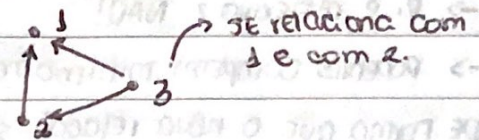 1
se relaciona com
1 e com 2.
3
2